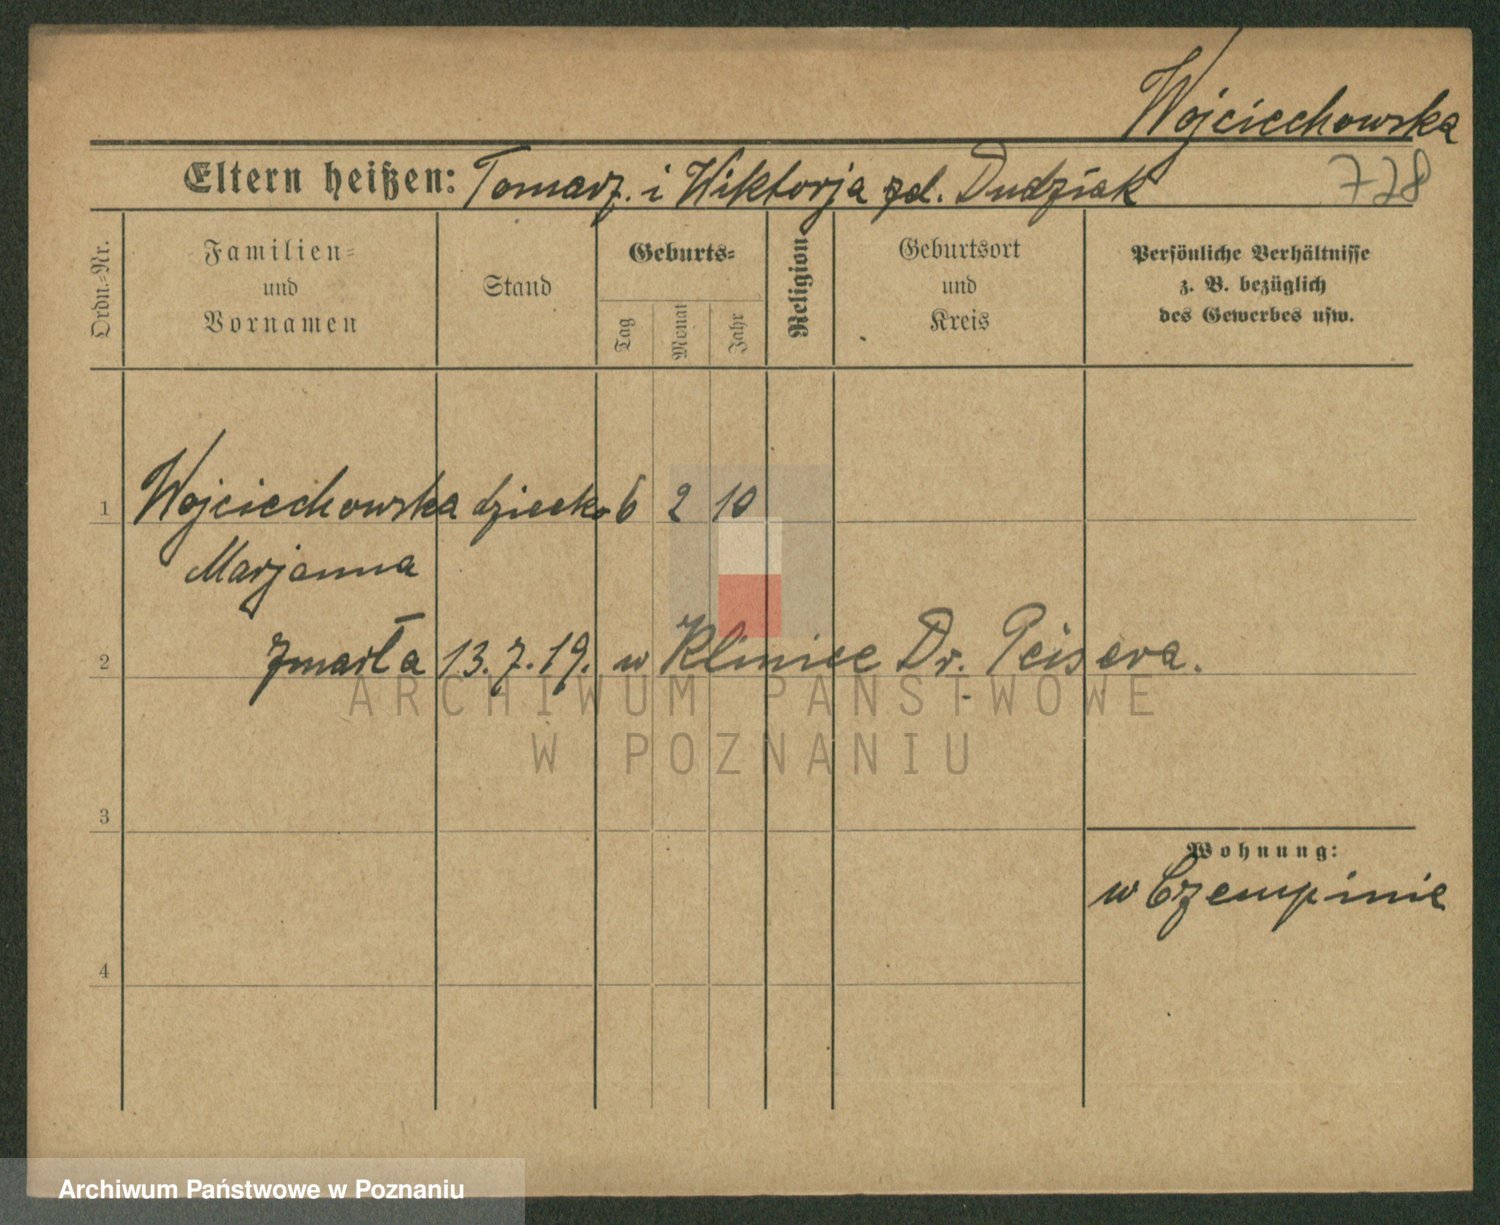 Wojciechowska
Eltern heißen: Tomasz. i Wiktorja zd. Dudziak
778
Ordn.-Nr.
Familien-
und
Vornamen
Stand
Geburts-
Tag
Monat
Jahr
Religion
Geburtsort
und
Kreis
Persönliche Verhältnisse
z. B. bezüglich
des Gewerbes usw.
1 Wojciechowska dziecko 6 2 10
Marjanna
2 zmarła 13.7.19. w Klinice Dr. Peisera.
ARCHIWUM PAŃSTWOWE
W POZNANIU
3
Wohnung:
w Czempinie
4
Archiwum Państwowe w Poznaniu